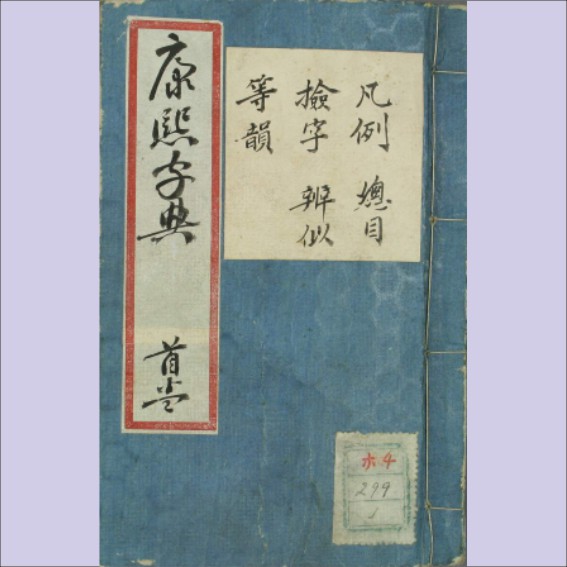 康熙字典 首
凡例 總目
撿字 辨似
等韻
ホ4
299
1